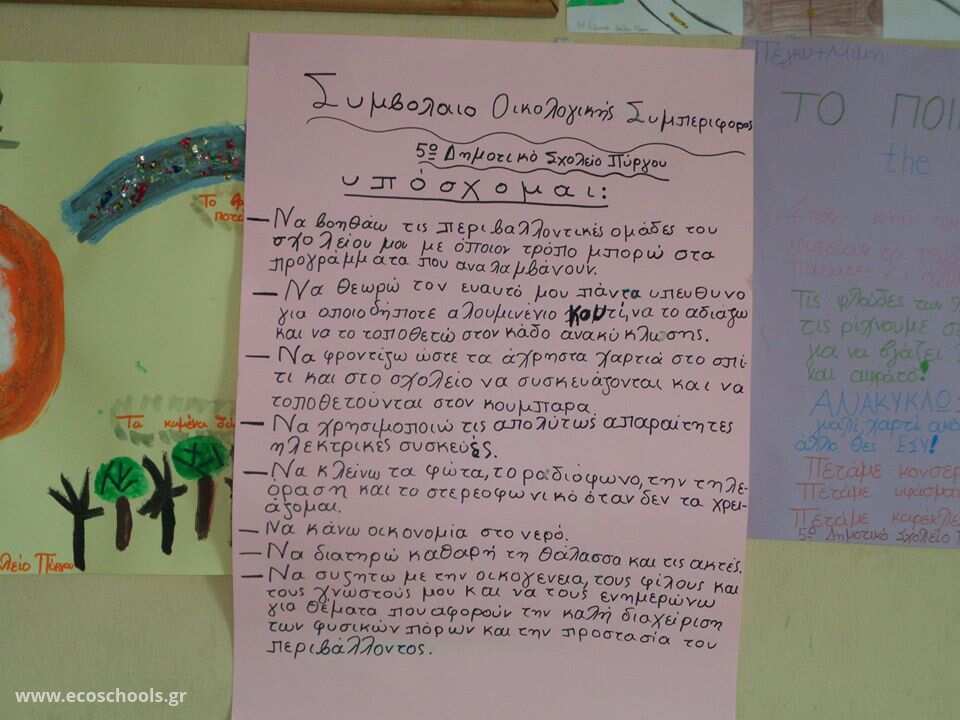 Συμβολαιο Οικολογικής Συμπεριφορας
5ο Δημοτικό Σχολείο Πύργου
υπόσχομαι:
— Να βοηθάω τις περιβαλλοντικές ομάδες του
σχολείου μου με όποιον τρόπο μπορώ στα
προγράμματα που αναλαμβάνουν.
— Να θεωρώ τον ευαυτό μου πάντα υπευθυνο
για οποιοδήποτε αλουμινένιο κουτί, να το αδιάζω
και να το τοποθετώ στον κάδο ανακύκλωσης.
— Να φροντίζω ώστε τα άχρηστα χαρτιά στο σπί-
τι και στο σχολείο να συσκευάζονται και να
τοποθετούνται στον κουμπαρα.
— Να χρησιμοποιώ τις απολύτως απαραίτητες
ηλεκτρικές συσκευές.
— Να κλείνω τα φώτα, το ραδιόφωνο, την τηλε-
όραση και το στερεοφωνικό όταν δεν τα χρει-
άζομαι.
— Να κάνω οικονομία στο νερό.
— Να διατηρώ καθαρή τη θάλασσα και τις ακτές.
— Να συζητω με την οικογενεια, τους φίλους και
τους γνωστούς μου και να τους ενημερώνω
για θέματα που αφορούν την καλή διαχείριση
των φυσικών πόρων και την προστασία του
περιβάλλοντος.
Το
ποτα
Τα καμένα
λείο Πύργου
Πέγκυ+Μαιρη
ΤΟ ΠΟΙ
the
Τις φλούδες των
τις ρίχνουμε σ
για να βγάζει
και αιφράτο!
ΑΝΑΚΥΚΛΩ
μαζί χαρτί ανα
άλλο θες ΕΣΥ!
Πετάμε κονσερ
Πετάμε υφάσμα
Πετάμε καρέκλε
5ο Δημοτικό Σχολείο
www.ecoschools.gr